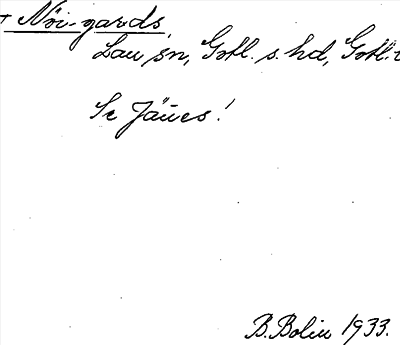 + Nöi-gards,
Lau sn, Gotl. s. hd, Gotl.
Se Jaues!
B. Bolin 1933.